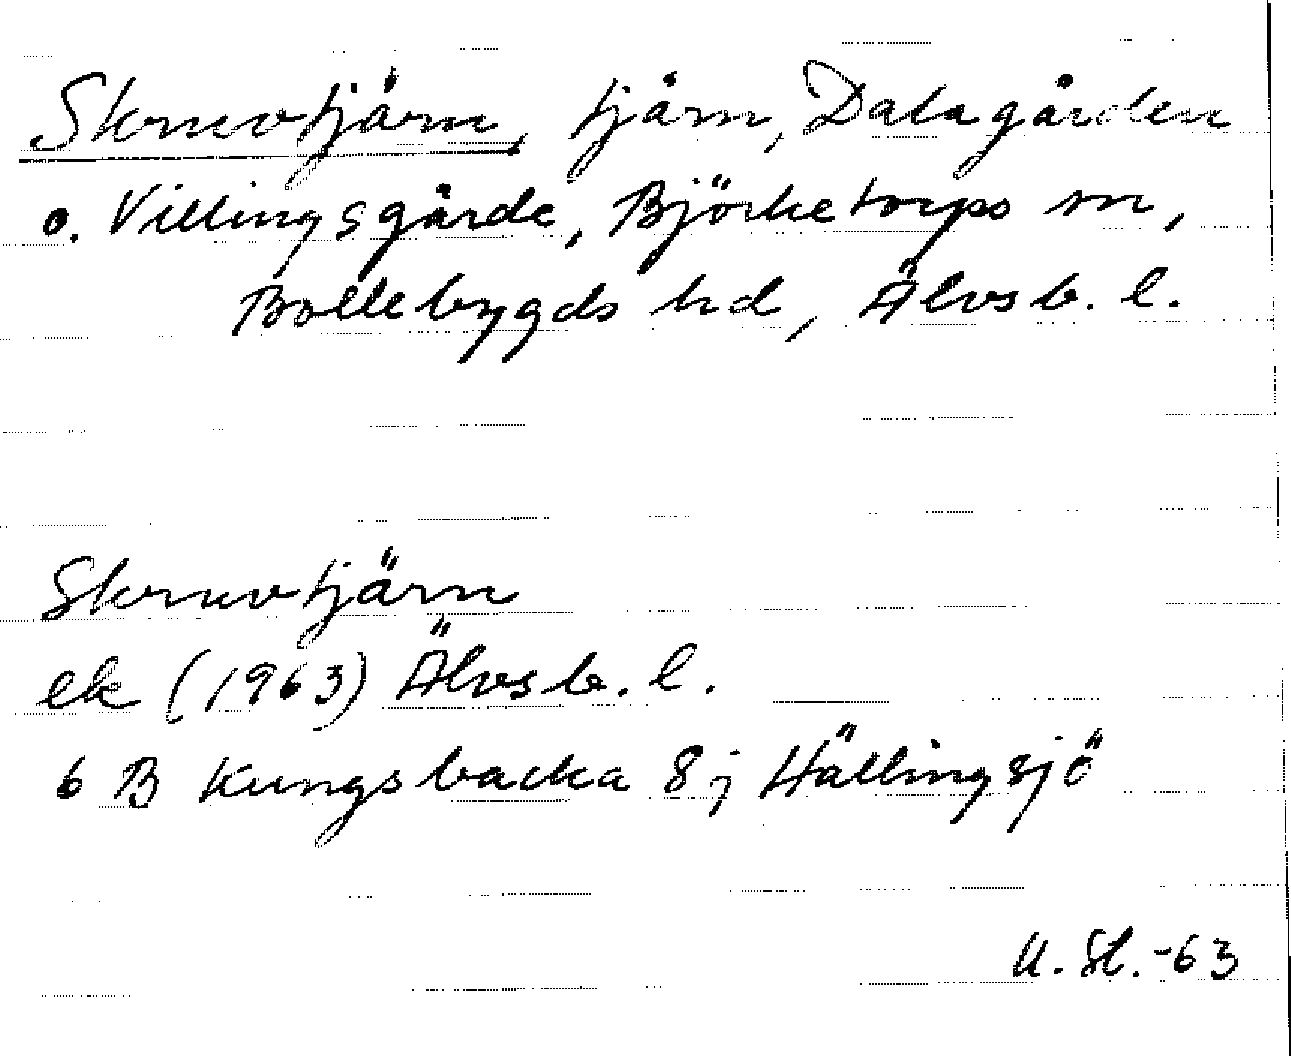 Skruvtjärn, tjärn, Dalagärden
o. Villingsgärde, Björketorps sn,
Bollebygds hd, Älvsb. l.
Skruvtjärn
ek (1963) Älvsb. l.
6 B Kungsbacka 8 j Hällingsjö
U. Sl. -63